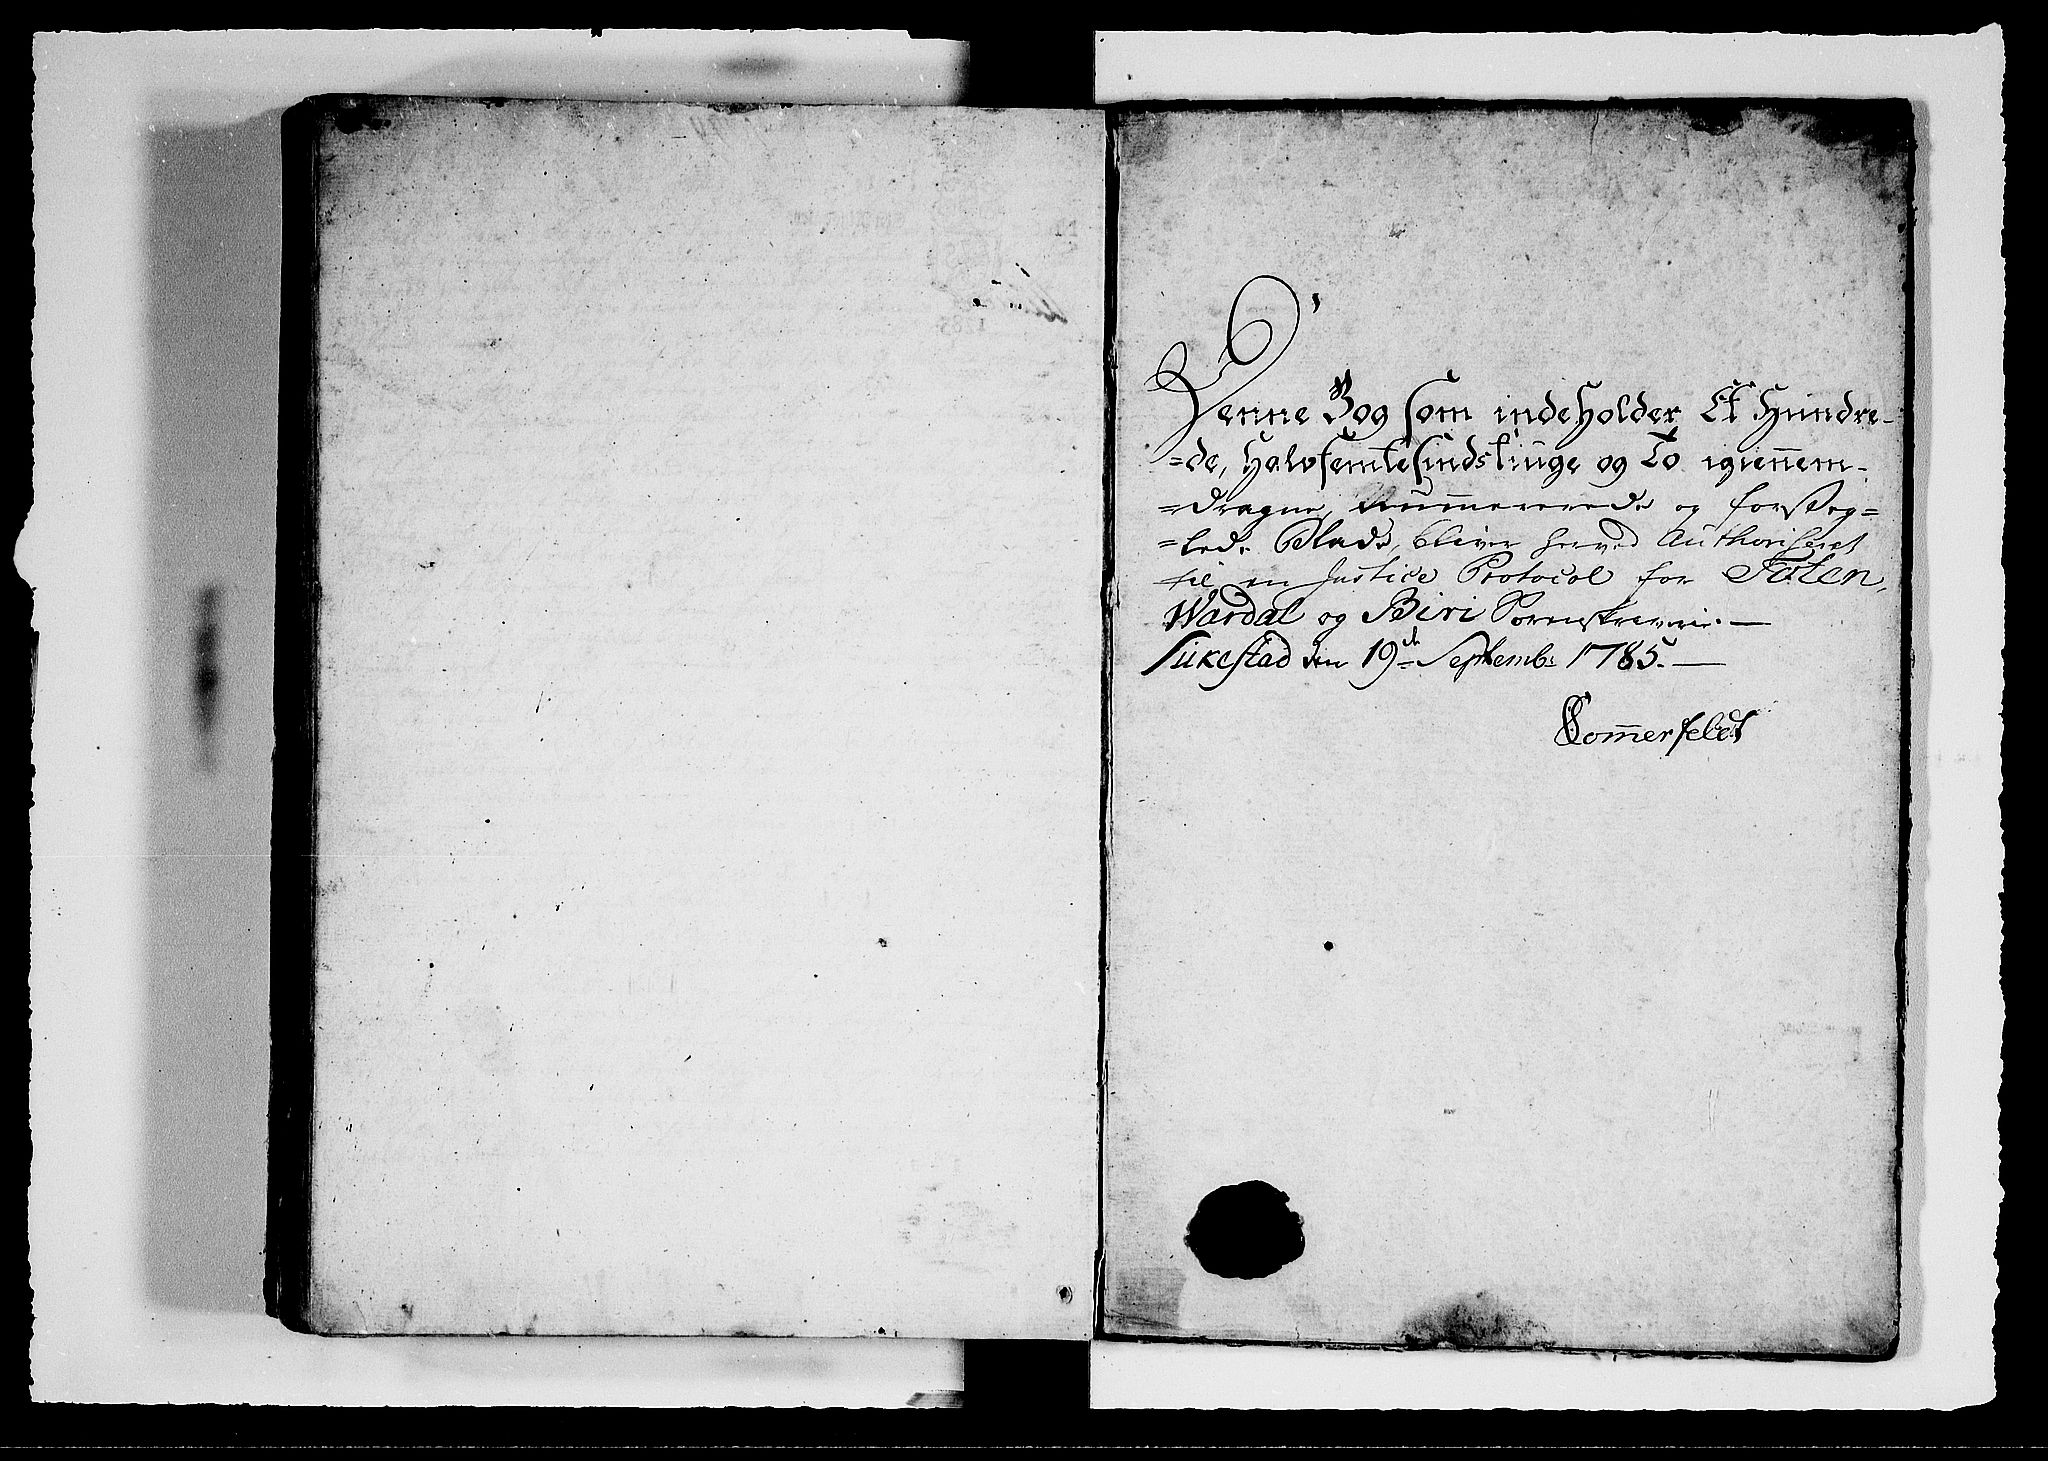 Denne Bog som indeholder Et Hundre-
=de, Halvfemtesindstiuge og To igiennem-
=dragne, Nummererede og forseg=
=lede Blade, bliver herved Authoriseret
til en Justice Protocol for Toten,
Wardal og Biri Sorenskriverie. —
Sukestad den 19de Septemb: 1785. —
Sommerfeldt